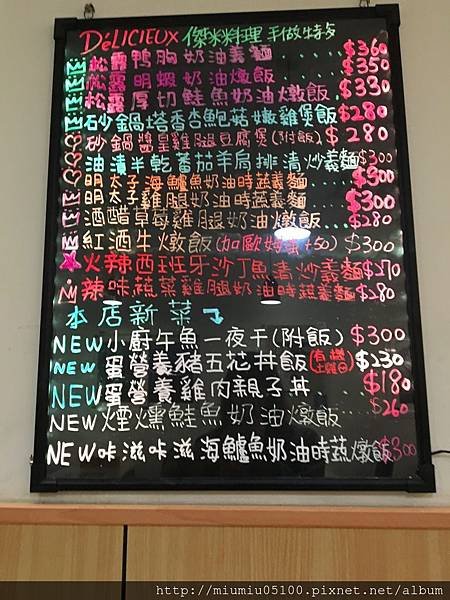 DéLICIEUX 傑米料理 手做特多
松露鴨胸奶油義麵 $360
松露明蝦奶油燉飯 $350
松露厚切鮭魚奶油燉飯 $330
砂鍋塔香杏鮑菇嫩雞煲飯 $280
砂鍋醬皇雞腿豆腐煲(附飯) $280
油漬半乾蕃茄羊肩排清炒義麵 $300
明太子海鱸魚奶油時蔬義麵.... $300
明太子雞腿奶油時蔬義麵.... $300
酒醋草莓雞腿奶油燉飯... $280
紅酒牛燉飯(加歐姆蛋+50) $300
火辣西班牙沙丁魚清炒義麵 $270
辣味蔬菜雞腿奶油時蔬義麵 $280
本店新菜
NEW 小廚午魚一夜干(附飯) $300
NEW 蛋營養豬五花丼飯(有機土雞蛋) $230
NEW 蛋營養雞肉親子丼 $180
NEW 煙燻鮭魚奶油燉飯 $260
NEW 咔滋咔滋海鱸魚奶油時蔬燉飯 $300
http://miumiu05100.pixnet.net/album